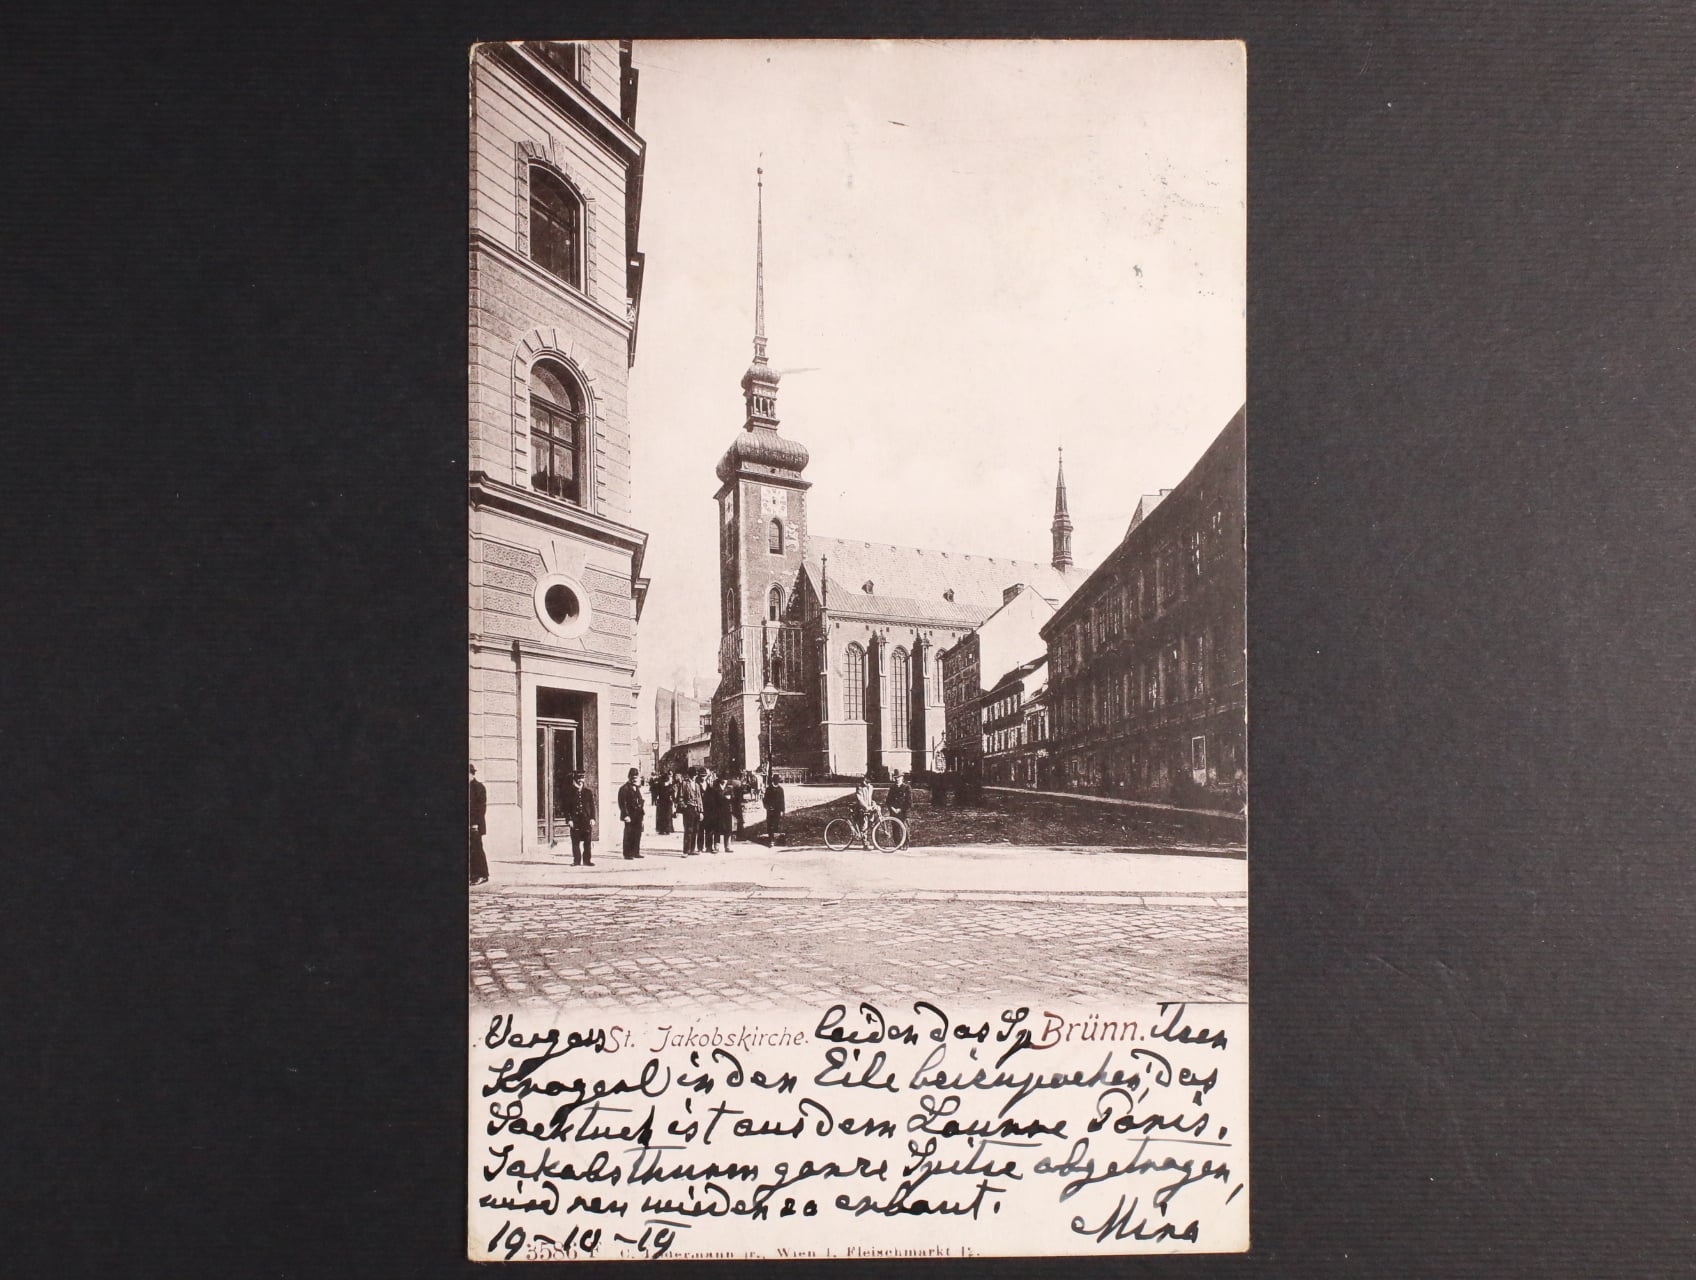 Vergass St. Jakobskirche. leider das Sp Brünn. itzen
Kragerl in der Eile beizupacken, das
Sacktuch ist aus dem Louvre Paris.
Jakobsthurm ganze Spitze abgetragen,
wird neu wieder so erbaut.
Mina
19-10-
5586 Wien I. Fleischmarkt